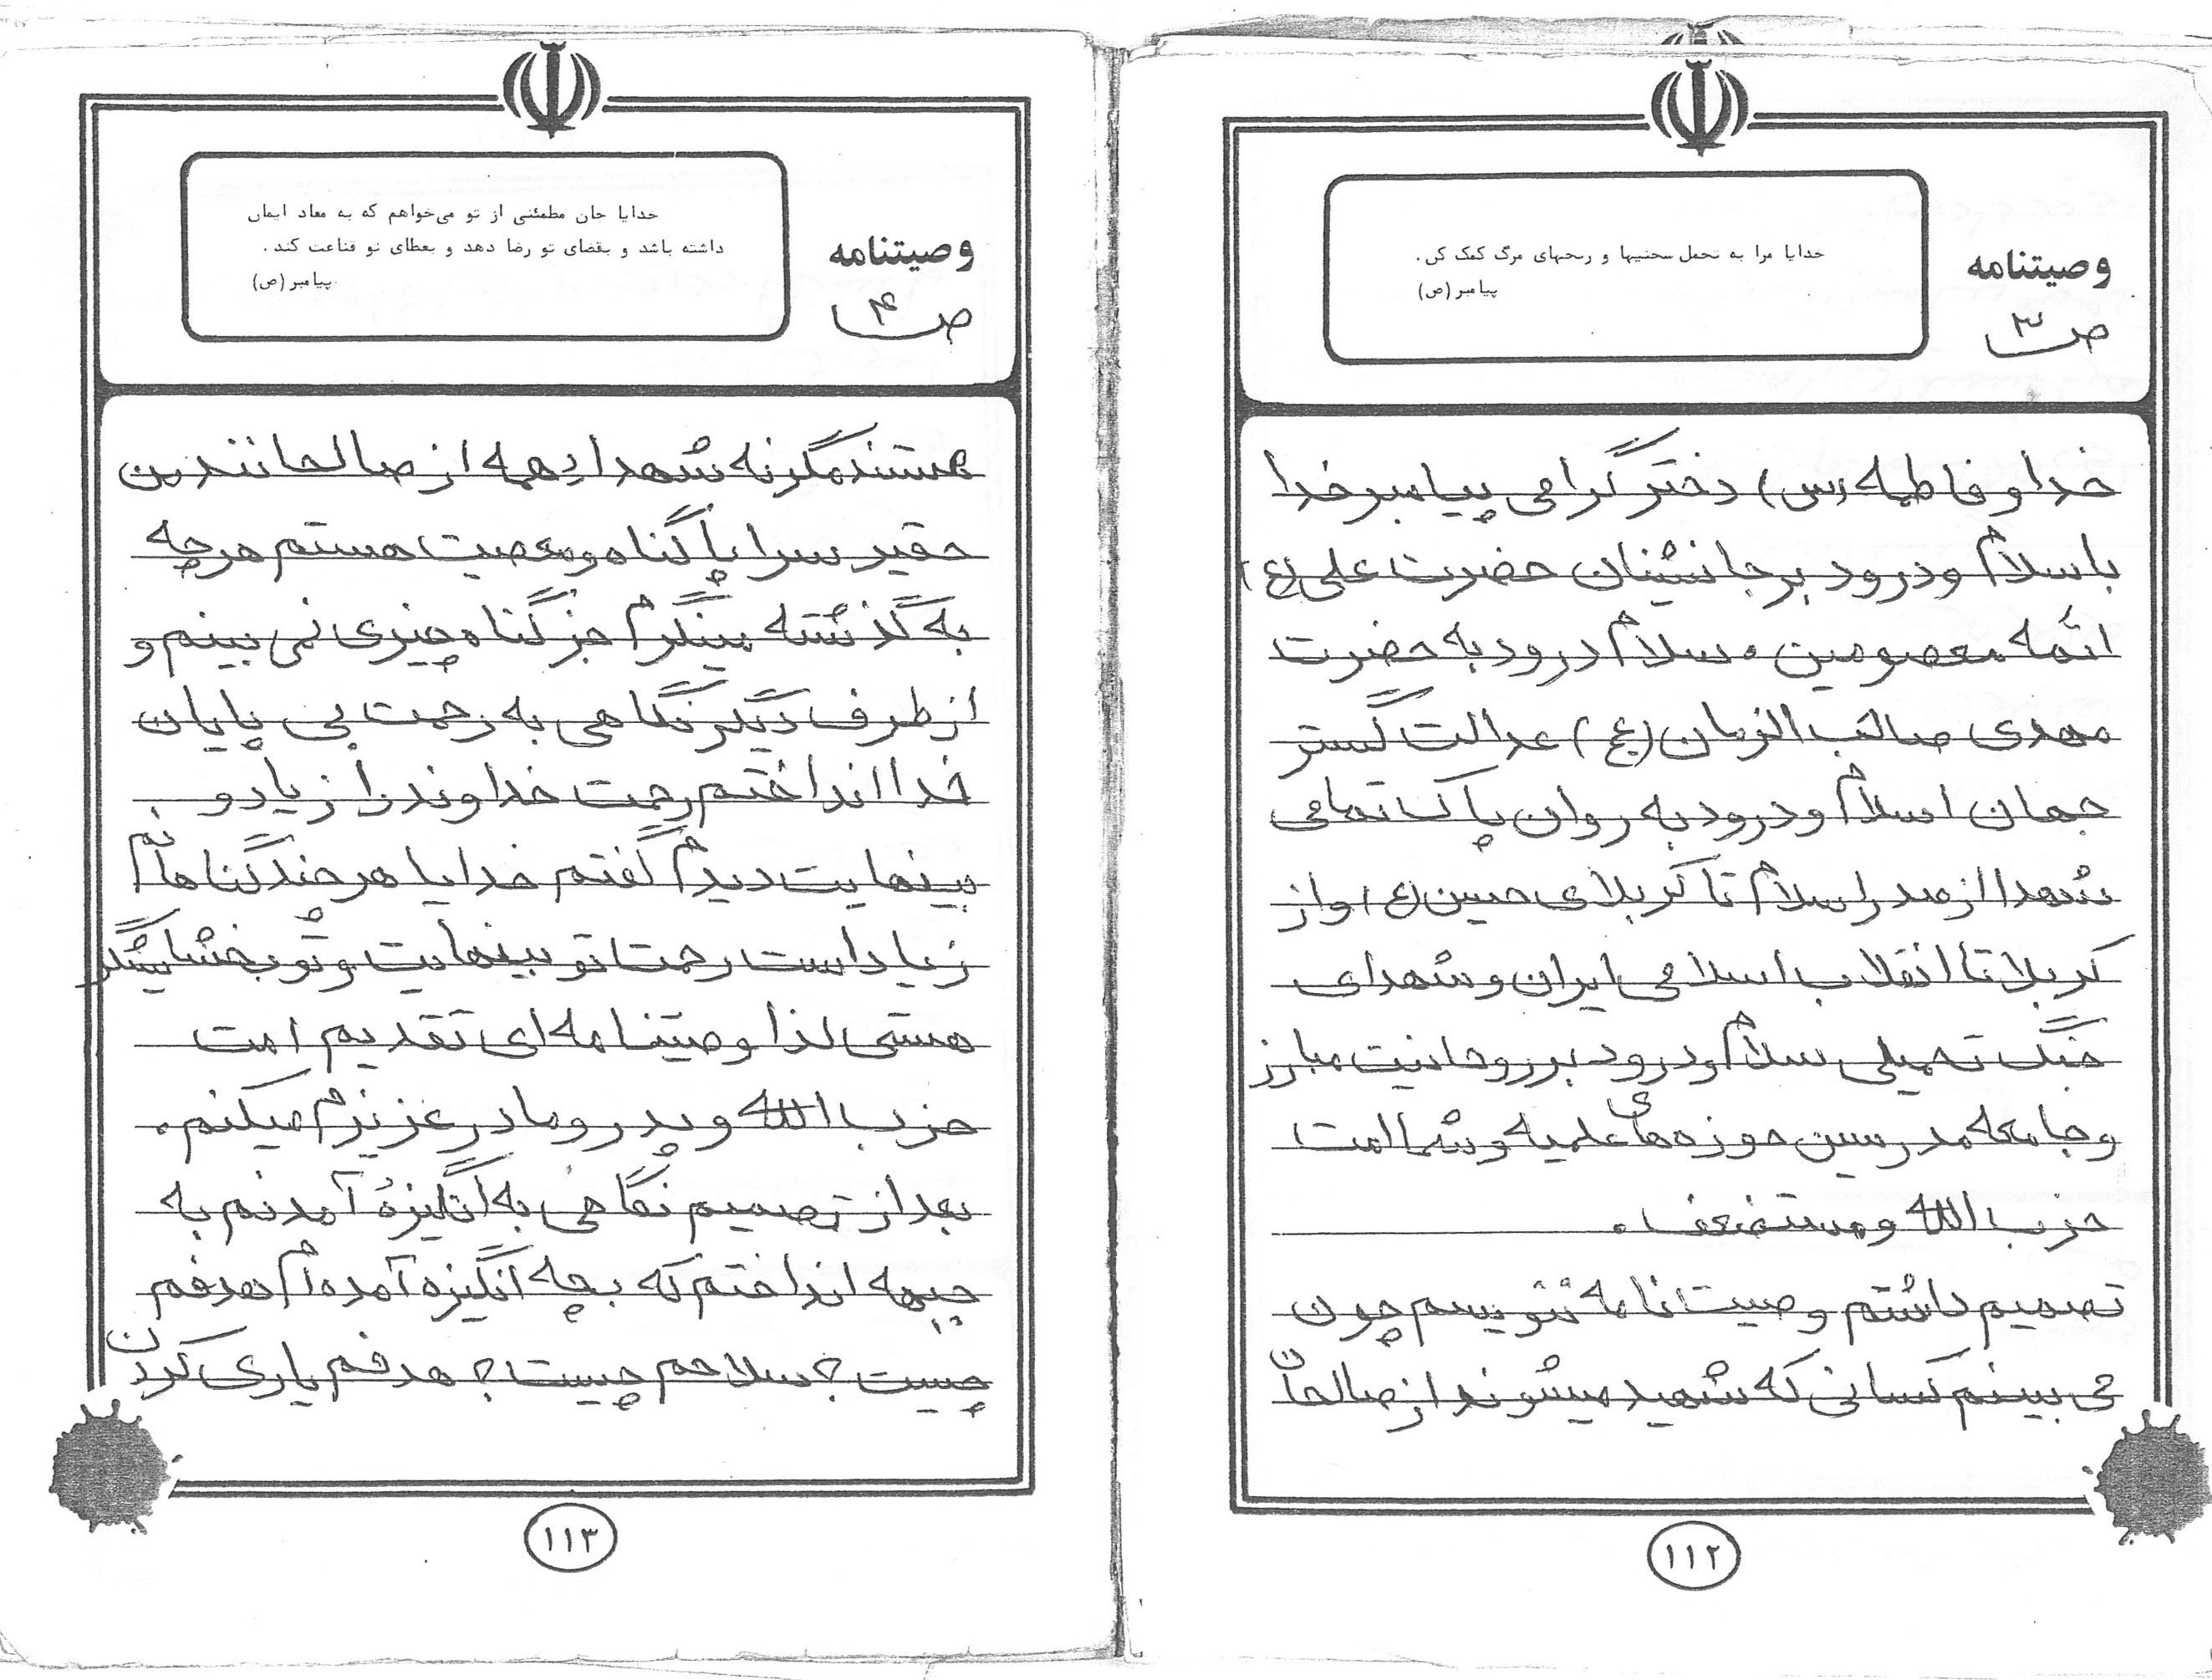 وصیتنامه
ص ۳
خدایا مرا به تحمل سختیها و رنجهای مرگ کمک کن .
پیامبر (ص)
خدا و فاطمه (س) دختر گرامی پیامبر خدا
با سلام و درود بر جانشینان حضرت علی (ع)
ائمه معصومین و سلام درود به حضرت
مهدی صاحب الزمان (عج) عدالت گستر
جهان اسلام و درود به روان پاک تمامی
شهدا از صدر اسلام تا کربلای حسین (ع) و از
کربلا تا انقلاب اسلامی ایران و شهدای
جنگ تحمیلی سلام و درود بر روحانیت مبارز
و جامعه مدرسین حوزه های علمیه و شما امت
حزب الله و مستضعف .
تصمیم داشتم وصیت نامه ننویسم چون
می بینم کسانی که شهید میشوند از صالحان
۱۱۲
وصیتنامه
ص ۴
خدایا جان مطمئنی از تو می‌خواهم که به معاد ایمان
داشته باشد و بقضای تو رضا دهد و بعطای تو قناعت کند .
پیامبر (ص)
هستند مگر نه شهدا همه از صالحانند من
حقیر سراپا گناه و معصیت هستم هر چه
به گذشته مینگرم جز گناه چیزی نمی بینم و
از طرف دیگر نگاهی به رحمت بی پایان
خدا انداختم رحمت خداوند را زیاد و
بینهایت دیدم گفتم خدایا هر چند گناهانم
زیاد است رحمت تو بینهایت و تو بخشایشگر
هستی لذا وصیتنامه ای تقدیم امت
حزب الله و پدر و مادر عزیزم میکنم .
بعد از تصمیم نگاهی به انگیزهٔ آمدنم به
جبهه انداختم که بچه انگیزه آمده ام هدفم
چیست ؟ سلاحم چیست ؟ هدفم یاری کردن
۱۱۳